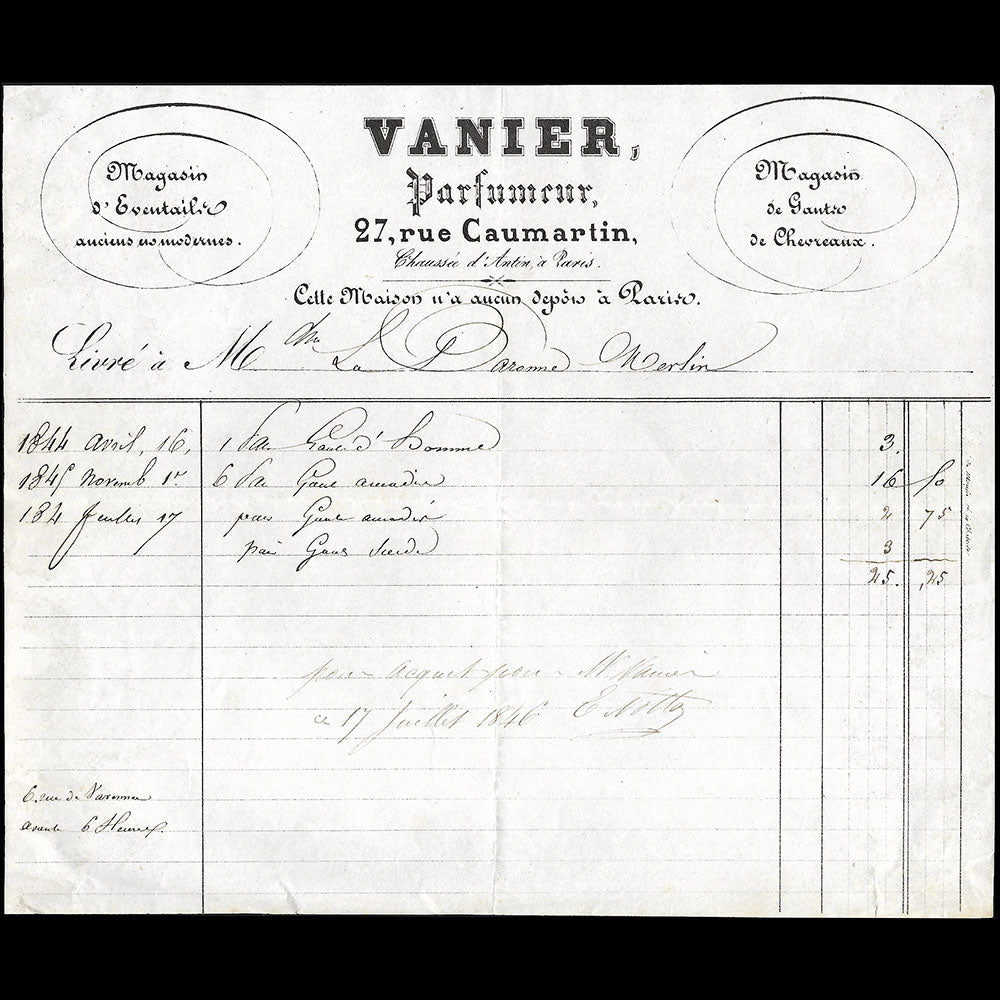 VANIER,
Parfumeur,
27, rue Caumartin,
Chaussée d'Antin, à Paris.
Cette Maison n'a aucun dépôt à Paris.
Magasin
d'Eventails
anciens et modernes.
Magasin
de Gants
de Chevreaux.
Livré à Mdme La Baronne Merlin
1844 avril, 16, 1 Gants d'homme 3.
1845 Novemb 1er 6 Gant amadis 16 50
184 Juillet 17 paire Gants amadis 2 75
pair Gans Suede 3
25. ,25
pour acquit pour Mr Vanier
ce 17 Juillet 1846
6 rue de Varenne
avant 6 Heures.